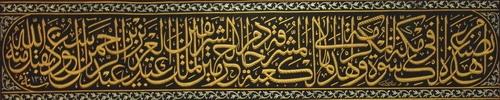 هذه الكسوة في مكة المكرمة وأهداها إلى الكعبة المشرفة خادم الحرمين الشريفين الملك عبد العزيز بن عبد الرحمن السعود تقبل الله منه